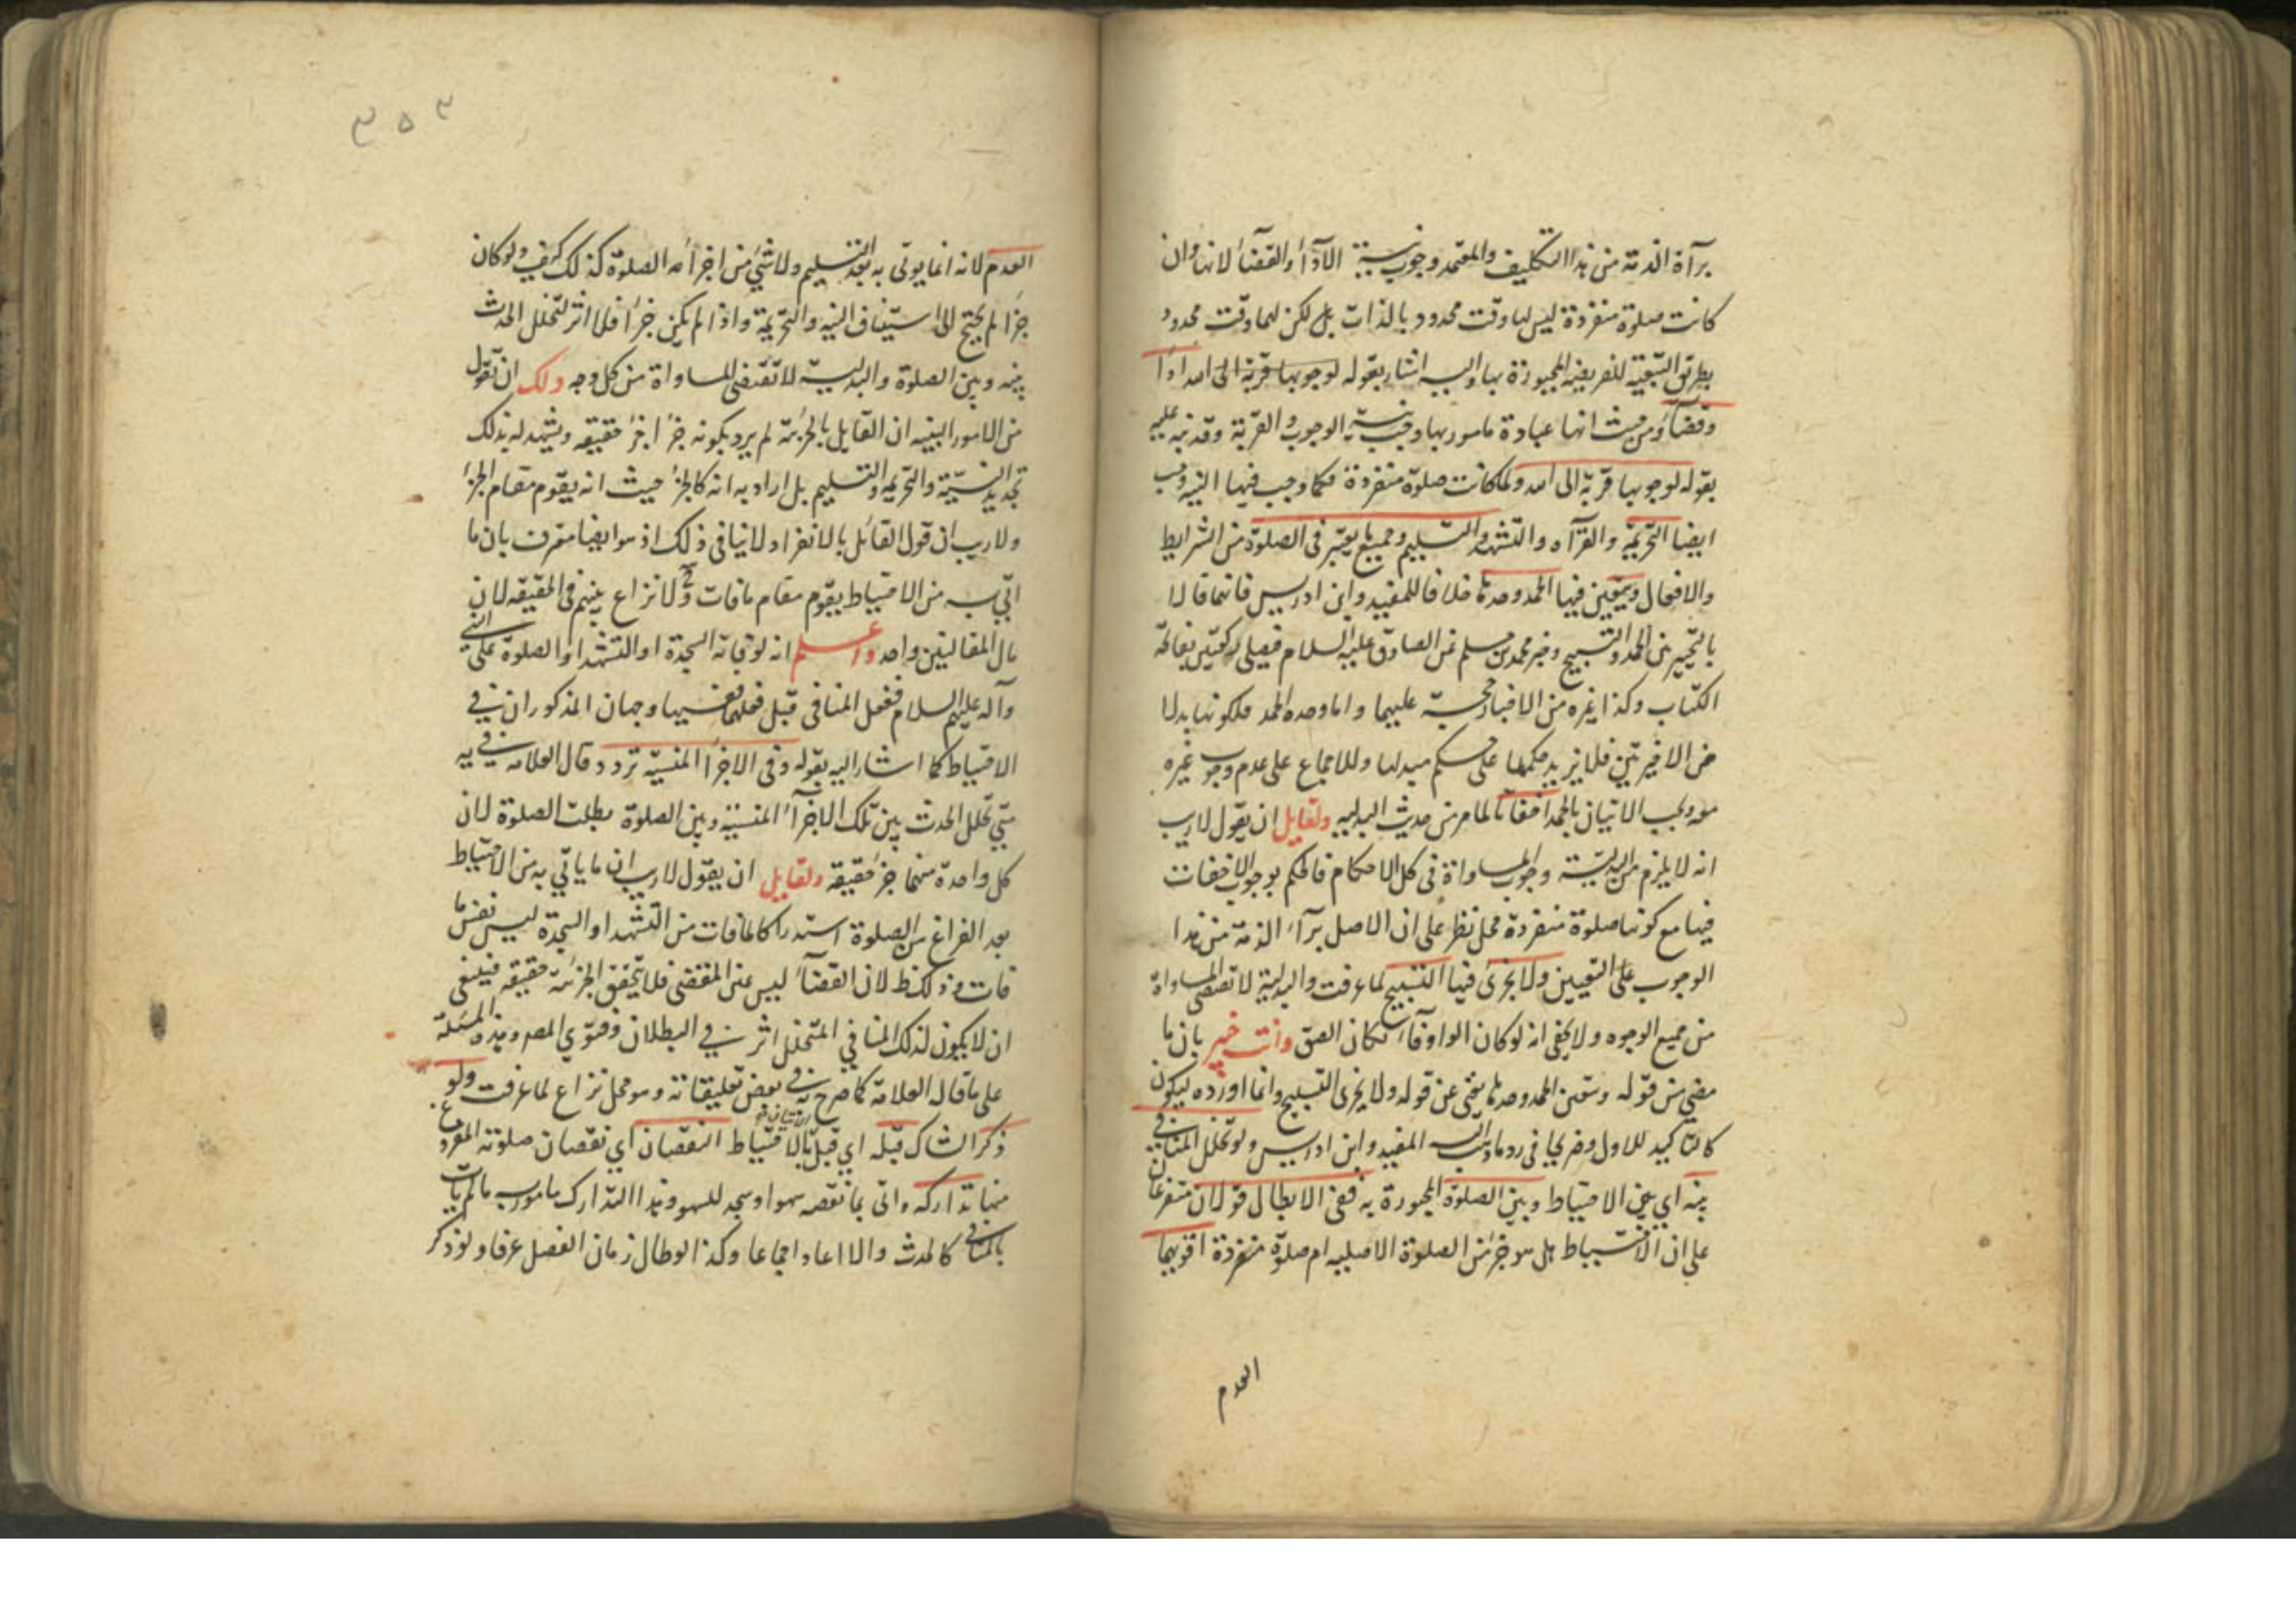 برآة الذمة من هذا التكليف والمعتمد وجوب نية الادآء والقضآء لانها وان
كانت صلوة منفردة ليس لها وقت محدود بالذات بل لكن لهما وقت محدود
بطريق التبعية للفريضة المجبورة بها واليه اشار بقوله لوجوبها قربة الى الله ادآء
وقضآء ومن حيث انها عبادة مامور بها وجب نية الوجوب والقربة وقد نبه عليه
بقوله لوجوبها قربة الى الله ولما كانت صلوة منفردة فكما وجب فيها النية وجب
ايضا التحريمة والقرآه والتشهد والتسليم وجميع ما يعتبر في الصلوة من الشرايط
والافعال ويتعين فيها الحمد وحدها خلافا للمفيد وابن ادريس فانهما قالا
بالتخيير بين الحمد والتسبيح وخبر محمد بن مسلم عن الصادق عليه السلام فيصلى ركعتين بفاتحة
الكتاب وكذا غيره من الاخبار حجة عليهما واما وحده الحمد فلكونها بدلا
عن الاخيرتين فلا يزيد حكمها على حكم مبدلها وللاجماع على عدم وجوب غيره
معه ويجب الاتيان بالحمد اخفاتا لما مر من حديث البدليه ولقايل ان يقول لا ريب
انه لا يلزم من البدلية وجوب المساواة في كل الاحكام فالحكم بوجوب الاخفات
فيها مع كونها صلوة منفردة محل نظر على ان الاصل برآء الذمة من هذا
الوجوب على التعيين ولا يجزئ فيها التسبيح لما عرفت والبدلية لا تقتضي المساواة
من جميع الوجوه ولا يخفى انه لو كان الواو فآء لكان الصق وانت خبير بان ما
مضى من قوله ويتعين الحمد وحدها يغنى عن قوله ولا يجزى التسبيح وانما اورده ليكون
كالتاكيد للاول وصريحا في رد ما ذهب اليه المفيد وابن ادريس ولو تخلل المنافى
بينه اي بين الاحتياط وبين الصلوة المجبورة به ففي الابطال قولان متفرعان
على ان الاحتياط هل هو جزء من الصلوة الاصليه ام صلوة منفردة اقويهما
العدم
العدم لانه انما يوتى به بعد التسليم ولا شئ من اجزآء الصلوة كذلك كيف ولو كان
جزءا لم يحتج الى استيناف النيه والتحريمة واذا لم يكن جزءا فلا اثر لتخلل الحدث
بينه وبين الصلوة والبدلية لا تقتضى المساواة من كل وجه ولك ان تقول
من الامور البينه ان القايل بالجزئية لم يرد بكونه جزءا جزء حقيقه ويشهد له بذلك
تجديد النية والتحريمه والتسليم بل اراد به انه كالجزء حيث انه يقوم مقام الجزء
ولا ريب ان قول القائل بالانفراد لا ينافى ذلك اذ هو ايضا معترف بان ما
اتى به من الاحتياط يقوم مقام ما فات ولا نزاع بينهم في الحقيقه لان
مال المقالتين واحد واعلم انه لو فاته السجدة او التشهد او الصلوة على النبي
وآله عليهم السلام ففعل المنافى قبل فعلهما ففيها وجهان المذكوران في
الاحتياط كما اشار اليه بقوله وفى الاجزآء المنسية تردد وقال العلامه في يه
متى تخلل الحدث بين تلك الاجزآء المنسية وبين الصلوة بطلت الصلوة لان
كل واحدة منهما جزء حقيقه ولقايل ان يقول لا ريب ان ما ياتي به من الاحتياط
بعد الفراغ من الصلوة استدراكا لما فات من التشهد او السجدة ليس نفس ما
فات لان القضآء ليس عين المقضى فلا يتحقق الجزئية حقيقه فينبغى
ان لا يكون لذلك المنافي المتخلل اثر في البطلان وفتوي المص وهذه المسئلة
على ما قال العلامة كما صرح به في بعض تعليقاته وهو محل نزاع لما عرفت ولو
ذكر الشاك قبله اي قبل الاحتياط النقصان اي نقصان صلوته
منها تداركه واتى بما نقصه سهوا وسجد للسهو وهذا التدارك مامور به ما لم يات
بالمنافى كالحدث والا اعاد اجماعا وكذا لو طال زمان الفصل عرفا ولو ذكر